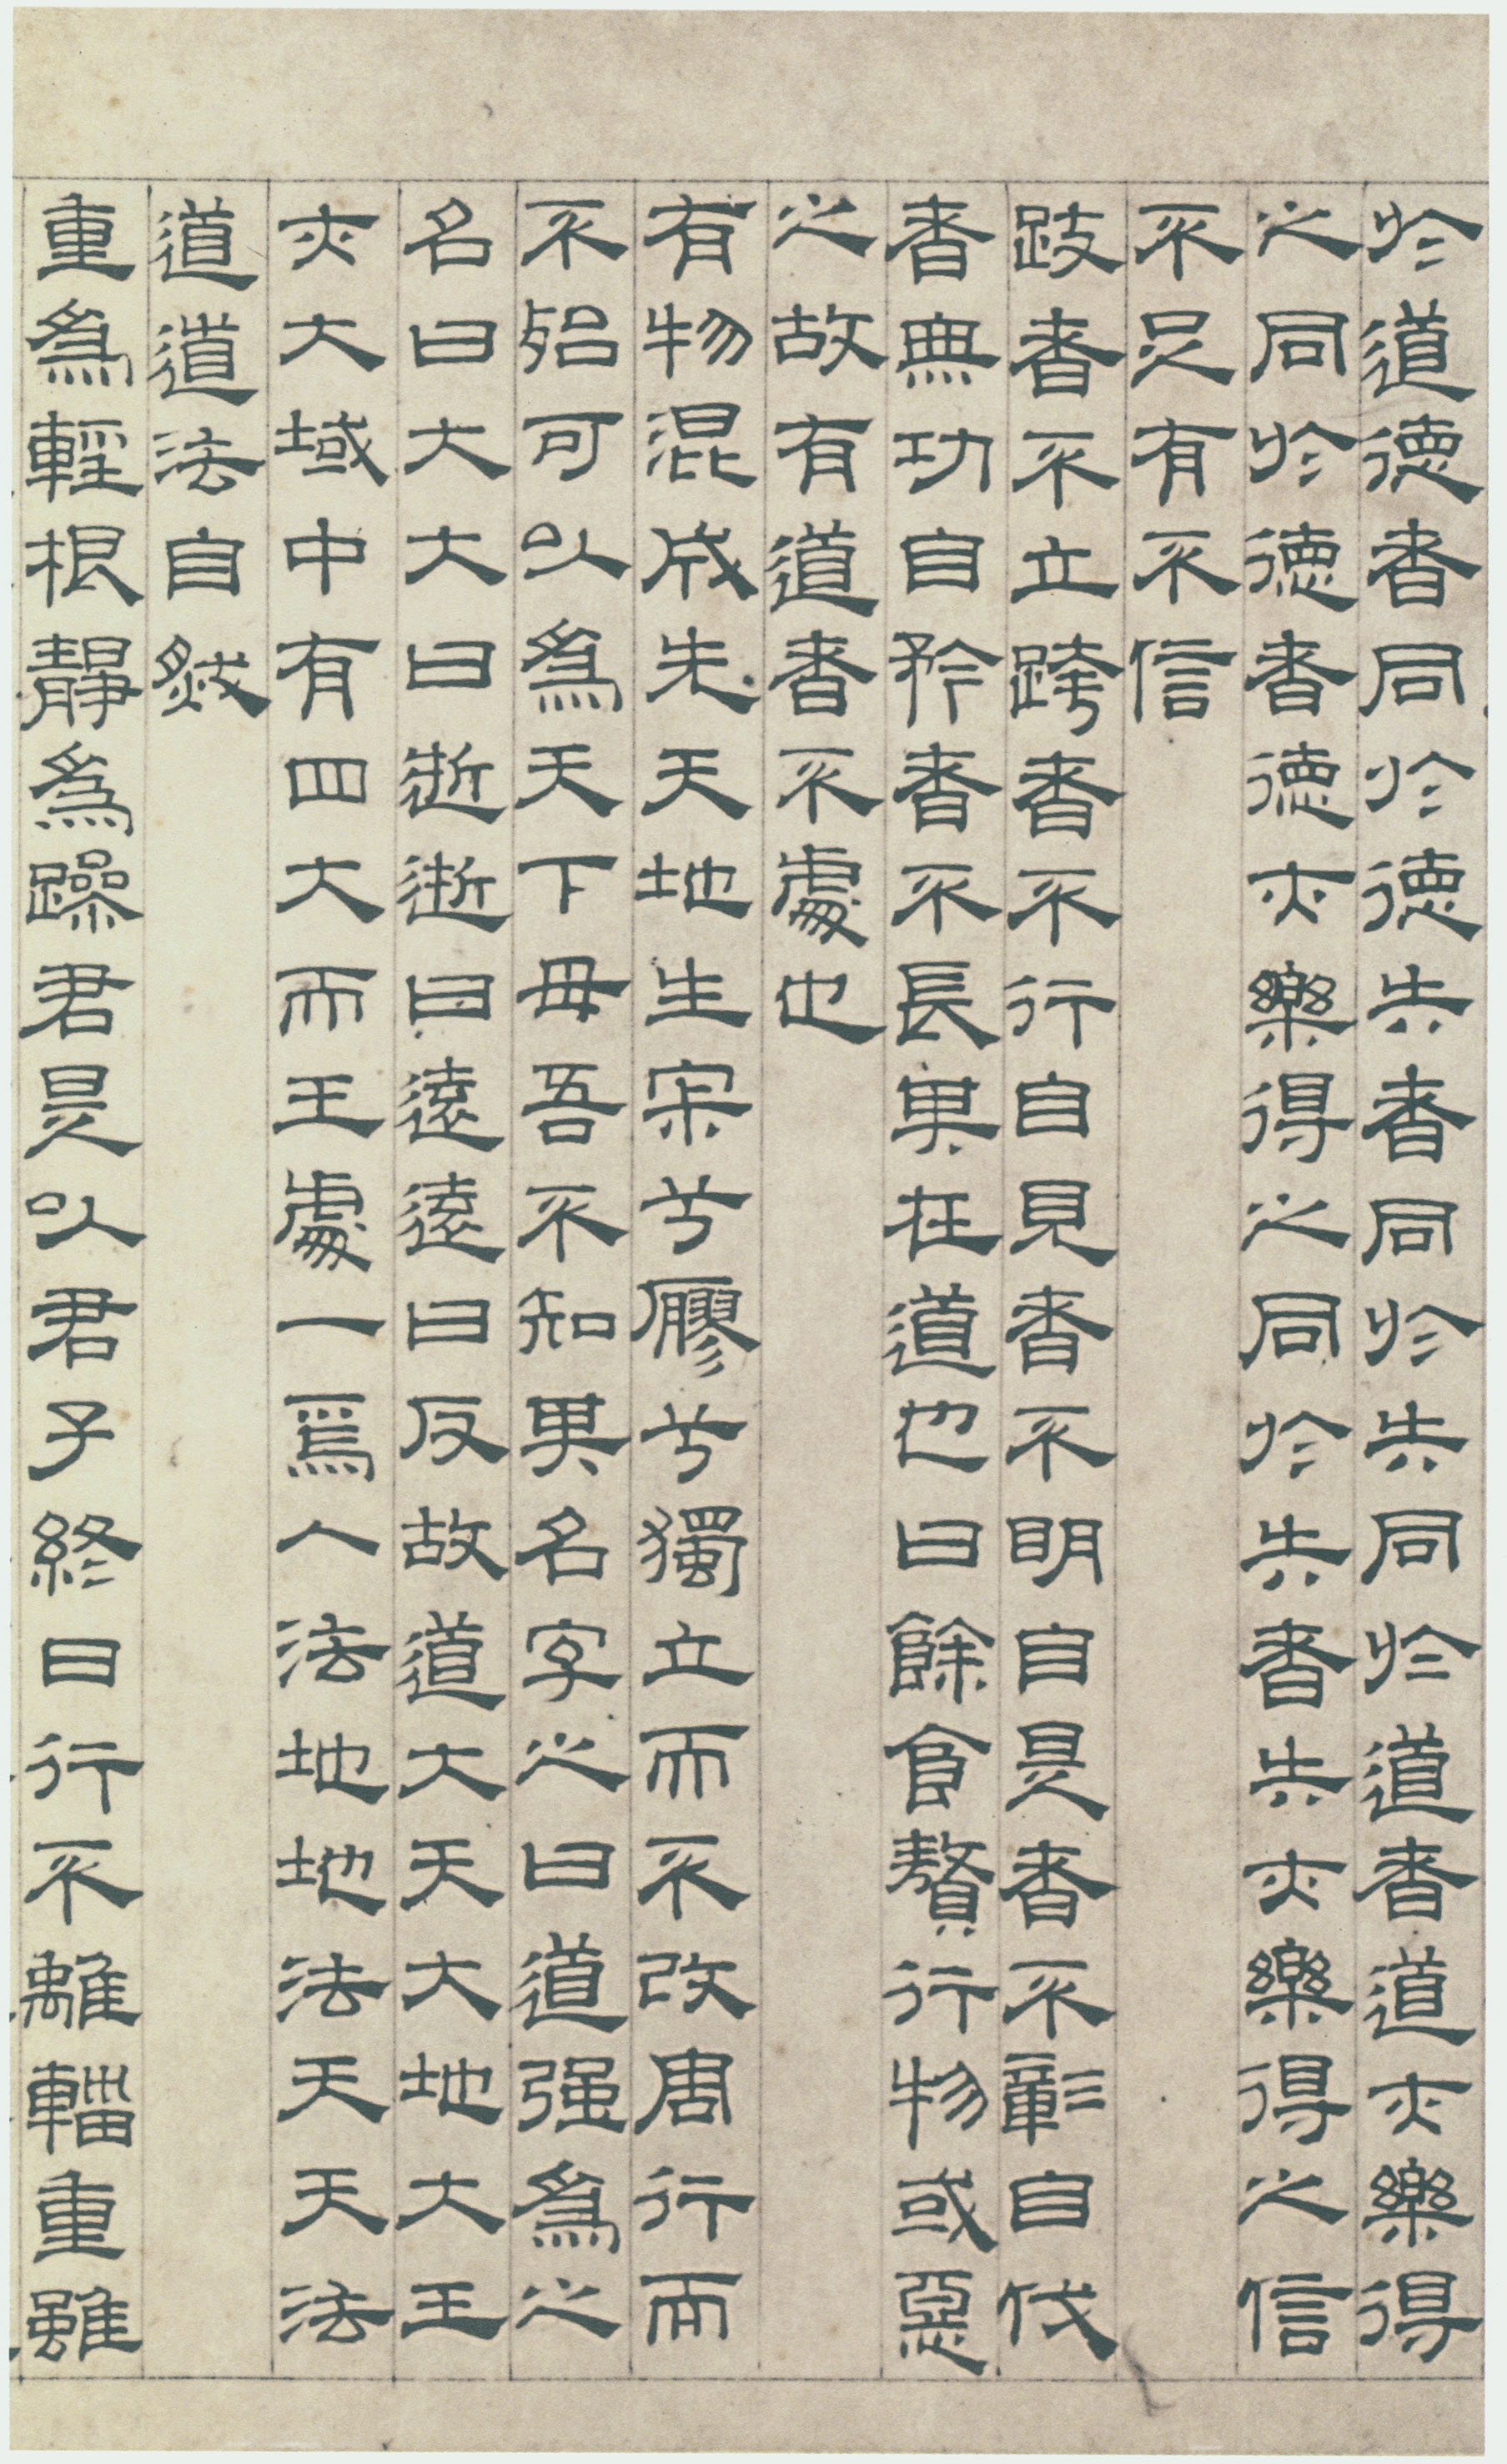 於道德者同於德失者同於失同於道者道亦樂得
之同於德者德亦樂得之同於失者失亦樂得之信
不足有不信
跂者不立跨者不行自見者不明自是者不彰自伐
者無功自矜者不長其在道也曰餘食贅行物或惡
之故有道者不處也
有物混成先天地生寂兮寥兮獨立而不改周行而
不殆可以爲天下母吾不知其名字之曰道强爲之
名曰大大曰逝逝曰遠遠曰反故道大天大地大王
亦大域中有四大而王處一焉人法地地法天天法
道道法自然
重爲輕根靜爲躁君是以君子終日行不離輜重雖